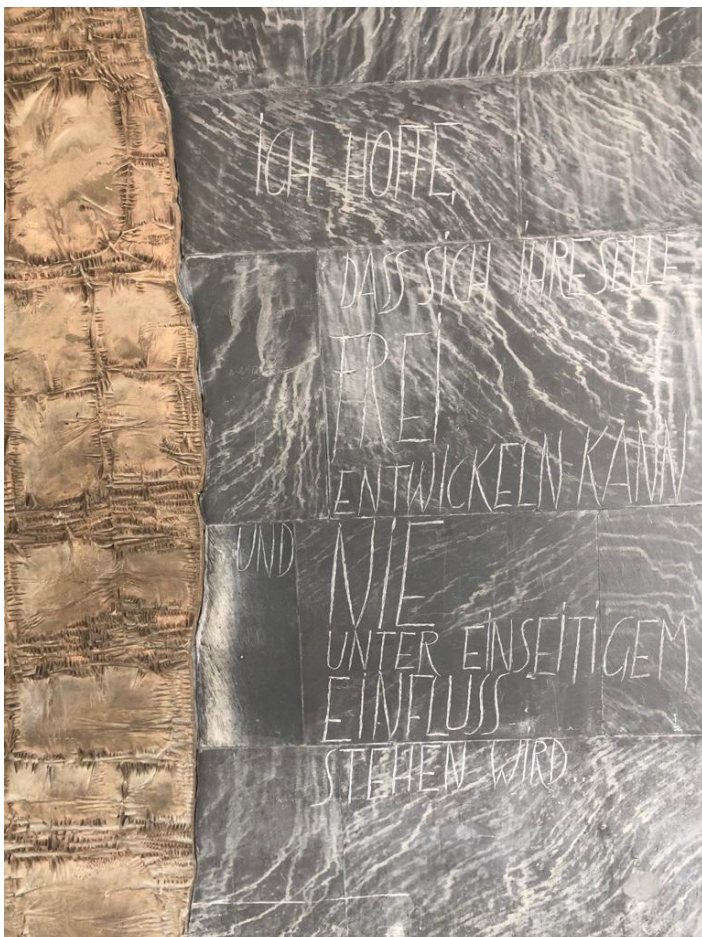 ICH HOFFE,
DASS SICH IHRE SEELE
FREI
ENTWICKELN KANN
UND NIE
UNTER EINSEITIGEM
EINFLUSS
STEHEN WIRD...